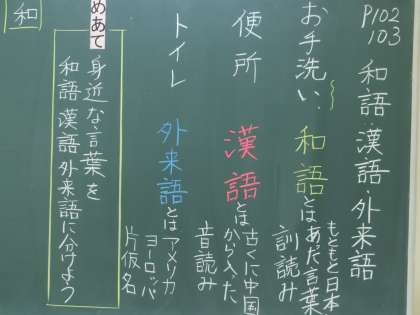 P102
103
和語・漢語・外来語
お手洗い
和語とは
もともと日本
あった言葉
訓読み
便所
漢語とは
古くに中国
から入った
音読み
トイレ
外来語とは
アメリカ
ヨーロッパ
片仮名
めあて
身近な言葉を
和語漢語外来語に分けよう
和